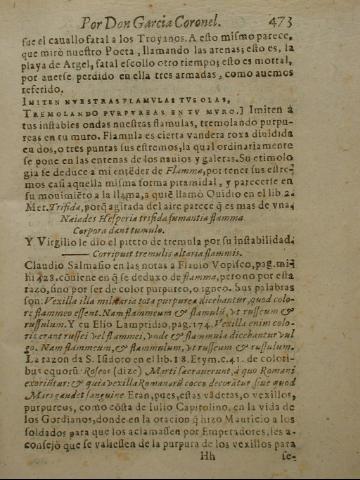 Por Don Garcia Coronel. 473
fue el cauallo fatal a los Troyanos. A esto mismo parece,
que mirò nuestro Poeta, llamando las arenas; esto es, la
playa de Argel, fatal escollo otro tiempo; esto es mortal,
por auerse perdido en ella tres armadas, como auemos
referido.
IMITEN NVESTRAS FLAMVLAS TVS OLAS,
TREMOLANDO PVRPVREAS EN TV MVRO.] Imiten á
tus instables ondas nuestras flamulas, tremolando purpu-
reas en tu muro. Flamula es cierta vandera roxa diuidida
en dos, o tres puntas sus estremos, la qual ordinariamente
se pone en las entenas de los nauios y galeras. Su etimolo
gia se deduce a mi entẽder de Flamma, por tener sus estre-
mos casi aquella misma forma piramidal, y parecerse en
su mouimiẽto a la llama, a quiẽ llamò Ouidio en el lib. 2.
Met. Trifida, porq̃ agitada del aire parece q̃ es mas de vna,
Naiades Hesperia trifida fumantia flamma
Corpora dant tumulo.
Y Virgilio le dio el piteto de tremula por su instabilidad.
Corripuit tremulis altaria flammis.
Claudio Salmasio en las notas a Flauio Vopisco, pag. mi-
hi 428. cõuiene en q̃ se deduxo de flamma, pero no por esta
razo, sino por ser de color purpureo, o igneo. Sus palabras
son. Vexilla illa militaria tota purpurea dicebantur, quod colo-
re flammeo essent. Nam flammeum & flamulũ, vt russeum &
russulum. Y en Elio Lampridio, pag. 174. Vexilla enim colo-
ris erant russei vel flammei, vnde & flammula dicebantur vul
go. Nam flammeum, & flammulum, vt russeum & russulum.
La razon da S. Isidoro en el lib. 18. Etym. c. 41. de colori-
bus equorũ. Roseos (dize) Marti sacrauerunt, à quo Romani
exoriẽtur: & quia vexilla Romanorũ cocco decorãtur siue quod
Mars gaudet sanguine Eran, pues, estas vãderas, o vexillos,
purpureos, como cõsta de Iulio Capitolino, en la vida de
los Gordianos, donde en la oracion q̃ hizo Mauricio a los
soldados para que aclamassen por Emperadores, les a-
consejò que se valiessen de la purpura de los vexillos para
Hh se-